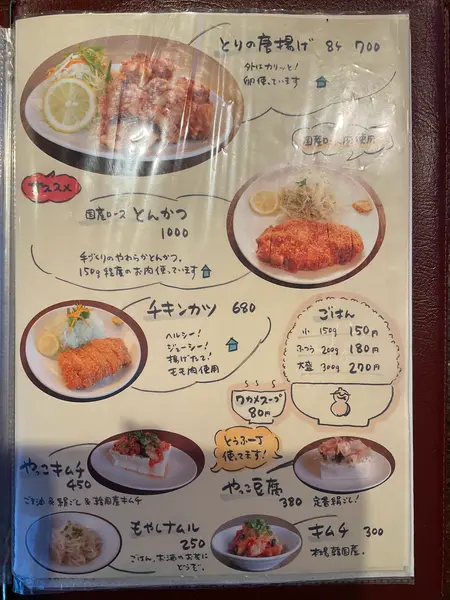 とりの唐揚げ 8ケ 700
外はカリ〜と!
卵使っています
国産ロース肉使用
オススメ
国産ロース とんかつ
1000
手づくりのやわらかとんかつ。
150g程度のお肉使っています
チキンカツ 680
ヘルシー!
ジューシー!
揚げたて!
モモ肉使用
ごはん
小 150g 150円
ふつう 200g 180円
大盛 300g 270円
ワカメスープ
80円
とうふ一丁
使ってます!
やっこキムチ
450
ごま油 & 絹ごし & 韓国産キムチ
やっこ豆腐
380 定番絹ごし!
もやしナムル
250
ごはん、お酒のお友に
どうぞ。
キムチ 300
本場韓国産。